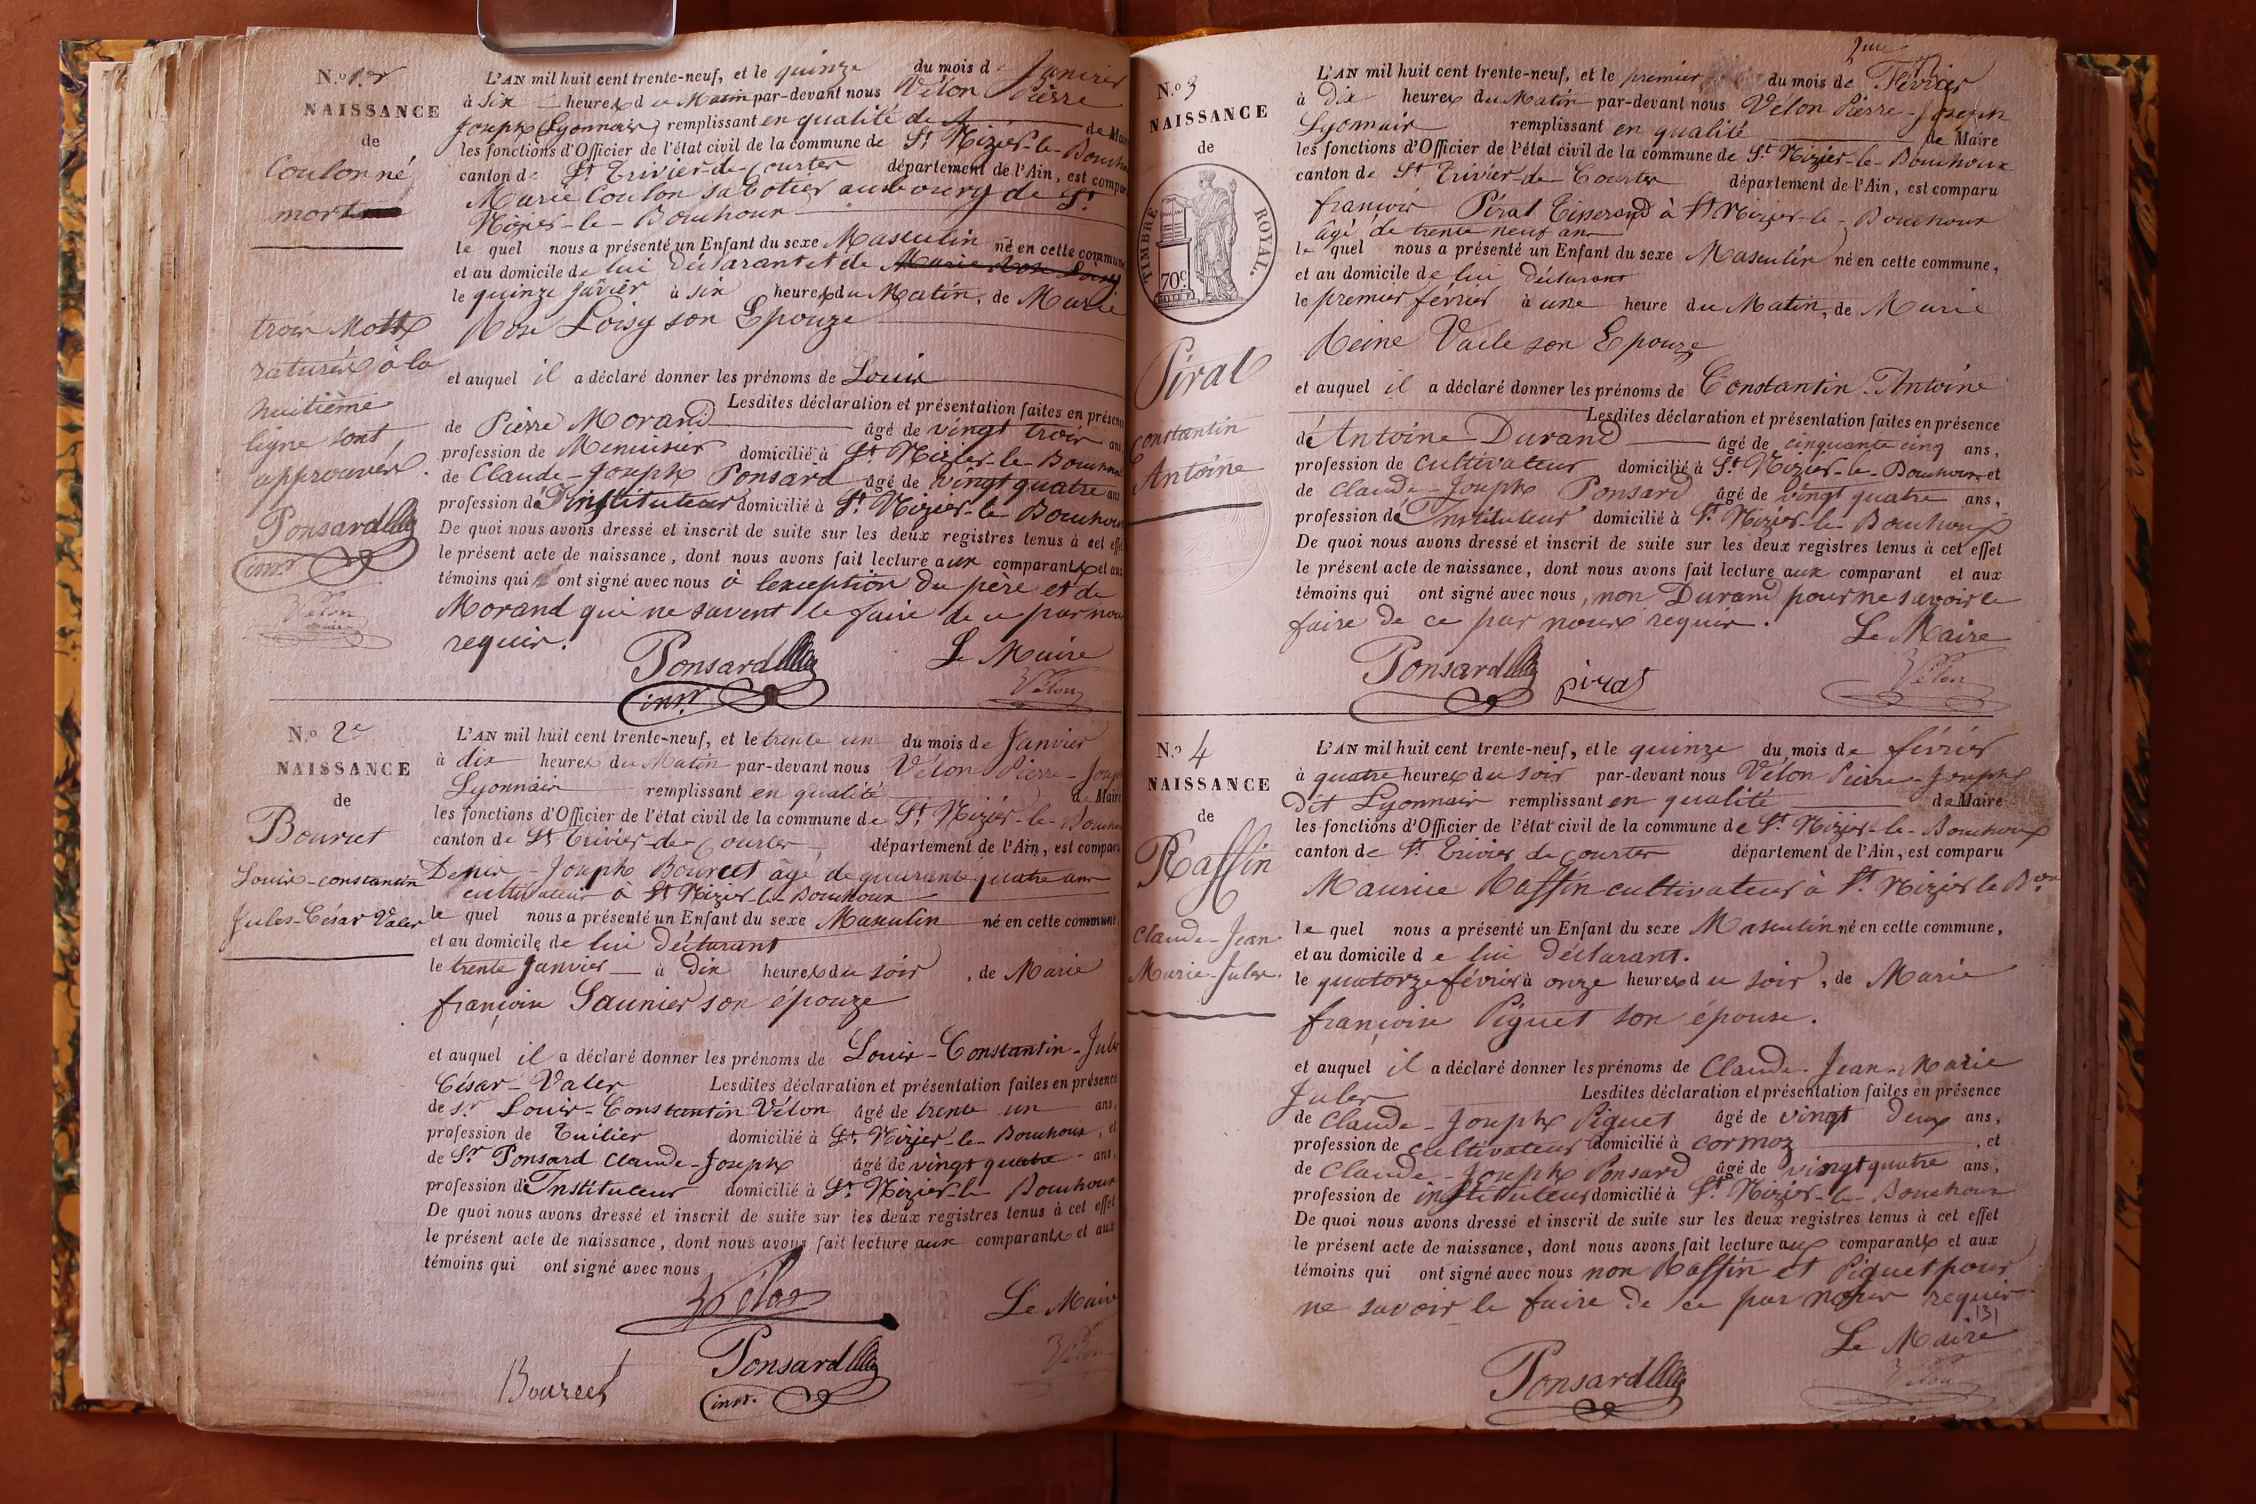 N.o 1.er
NAISSANCE
de
Coulon né
mort
trois Mots
raturés à la
huitième
ligne sont
approuvés.
Ponsard
instr
Vélon
L'AN mil huit cent trente-neuf, et le quinze du mois de Janvier
à six heures du Matin par-devant nous Vélon Pierre
Joseph (Lyonnais) remplissant en qualité de Maire
les fonctions d'Officier de l'état civil de la commune de St. Nizier-le-Bouchoux
canton de St Trivier-de-Courtes département de l'Ain, est comparu
Marie Coulon sabotier au bourg de St.
Nizier-le-Bouchoux
le quel nous a présenté un Enfant du sexe Masculin né en cette commune
et au domicile de lui déclarant et de Marie Rose Loisy
le quinze Javier à six heures du Matin, de Marie
Rose Loisy son Epouze
et auquel il a déclaré donner les prénoms de Louis
Lesdites déclaration et présentation faites en présence
de Pierre Morand âgé de vingt trois ans,
profession de Menuisier domicilié à St. Nizier-le-Bouchoux
de Claude-Joseph Ponsard âgé de vingt quatre ans
profession d'Instituteur domicilié à St. Nizier-le Bouchoux
De quoi nous avons dressé et inscrit de suite sur les deux registres tenus à cet effet
le présent acte de naissance, dont nous avons fait lecture aux comparants et aux
témoins qui ont signé avec nous à lexception du père et de
Morand qui ne savent le faire de ce par nous
requis.
Le Maire
Ponsard
instr.
Vélon
N.o 2e
NAISSANCE
de
Bourcet
Louis-constantin
Jules-César Valer
L'AN mil huit cent trente-neuf, et le trente un du mois de Janvier
à dix heures du Matin par-devant nous Vélon Pierre-Joseph
Lyonnais remplissant en qualité de Maire
les fonctions d'Officier de l'état civil de la commune de St. Nizier-le-Bouchoux
canton de St Trivier-de-Courtes, département de l'Ain, est comparu
Denis-Joseph Bourcet âgé de quarante quatre ans
cultivateur à St Nizier-le-Bouchoux
le quel nous a présenté un Enfant du sexe Masculin né en cette commune,
et au domicile de lui déclarant
le trente Janvier à dix heures du soir, de Marie
françoise Saunier son épouze
et auquel il a déclaré donner les prénoms de Louis-Constantin-Jules
César-Valer Lesdites déclaration et présentation faites en présence
de Sr. Louis-Constantin Vélon âgé de trente un ans,
profession de Tuilier domicilié à St. Nizier-le-Bouchoux, et
de Sr Ponsard Claude-Joseph âgé de vingt quatre ans,
profession d'Instituteur domicilié à St. Nizier-le Bouchoux
De quoi nous avons dressé et inscrit de suite sur les deux registres tenus à cet effet
le présent acte de naissance, dont nous avons fait lecture aux comparants et aux
témoins qui ont signé avec nous
Vélon
Le Maire
Ponsard
instr.
Vélon
Bourcet
N.o 3
NAISSANCE
de
TIMBRE ROYAL
70c.
Piral
Constantin
Antoine
L'AN mil huit cent trente-neuf, et le premier du mois de Février
à Dix heures du Matin par-devant nous Vélon Pierre-Joseph
Lyonnais remplissant en qualité de Maire
les fonctions d'Officier de l'état civil de la commune de St. Nizier-le-Bouchoux
canton de St Trivier-de-Courtes département de l'Ain, est comparu
françois Piral Tisserand à St Nizier-le-Bouchoux
âgé de trente neuf ans
le quel nous a présenté un Enfant du sexe Masculin né en cette commune,
et au domicile de lui déclarant
le premier février à une heure du Matin, de Marie
Reine Vaile son Epouze
et auquel il a déclaré donner les prénoms de Constantin-Antoine
Lesdites déclaration et présentation faites en présence
de Antoine Durand âgé de cinquante cinq ans,
profession de cultivateur domicilié à St. Nizier-le-Bouchoux, et
de Claude-Joseph Ponsard âgé de vingt quatre ans,
profession d'Instituteur domicilié à St. Nizier-le-Bouchoux
De quoi nous avons dressé et inscrit de suite sur les deux registres tenus à cet effet
le présent acte de naissance, dont nous avons fait lecture aux comparant et aux
témoins qui ont signé avec nous, non Durand pour ne savoir le
faire de ce par nous requis.
Le Maire
Ponsard
piral
Vélon
N.o 4
NAISSANCE
de
Raffin
Claude-Jean
Marie-Jules.
L'AN mil huit cent trente-neuf, et le quinze du mois de février
à quatre heures du soir par-devant nous Vélon Pierre-Joseph
Dit Lyonnais remplissant en qualité de Maire
les fonctions d'Officier de l'état civil de la commune de St. Nizier-le-Bouchoux
canton de St. Trivier de Courtes département de l'Ain, est comparu
Maurice Raffin cultivateur à St. Nizier le Boux
le quel nous a présenté un Enfant du sexe Masculin né en cette commune,
et au domicile de lui déclarant.
le quatorze février à onze heures du soir, de Marie
françoise Piguet son épouse.
et auquel il a déclaré donner les prénoms de Claude-Jean-Marie
Jules Lesdites déclaration et présentation faites en présence
de Claude-Joseph Piguet âgé de vingt deux ans,
profession de cultivateur domicilié à cormoz, et
de Claude-Joseph Ponsard âgé de vingt quatre ans,
profession de instituteur domicilié à St. Nizier-le-Bouchoux
De quoi nous avons dressé et inscrit de suite sur les deux registres tenus à cet effet
le présent acte de naissance, dont nous avons fait lecture aux comparants et aux
témoins qui ont signé avec nous non Raffin et Piguet pour
ne savoir le faire de ce par nous requis.
131
Le Maire
Ponsard
Vélon